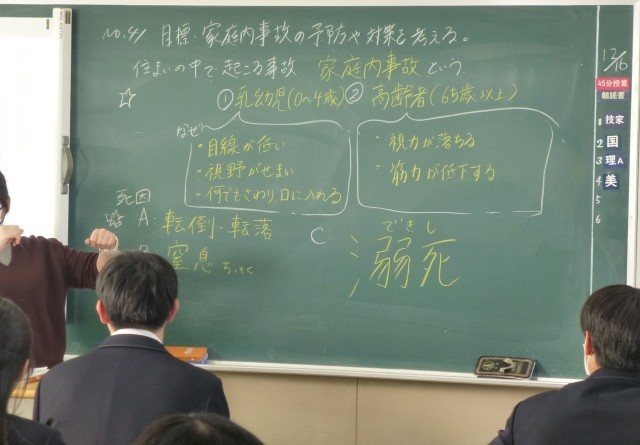 No.41 目標・家庭内事故の予防や対策を考える。
住まいの中で起こる事故 家庭内事故という
☆ ①乳幼児(0~4歳) ②高齢者(65歳以上)
なぜ?
・目線が低い
・視野がせまい
・何でもさわり、口に入れる
・視力が落ちる
・筋力が低下する
死因
A. 転倒・転落
窒息 ちっそく
C
できし
溺死
12/6
45分授業
朝読書
1 技家
2 国
3 理A
4 美
5
6